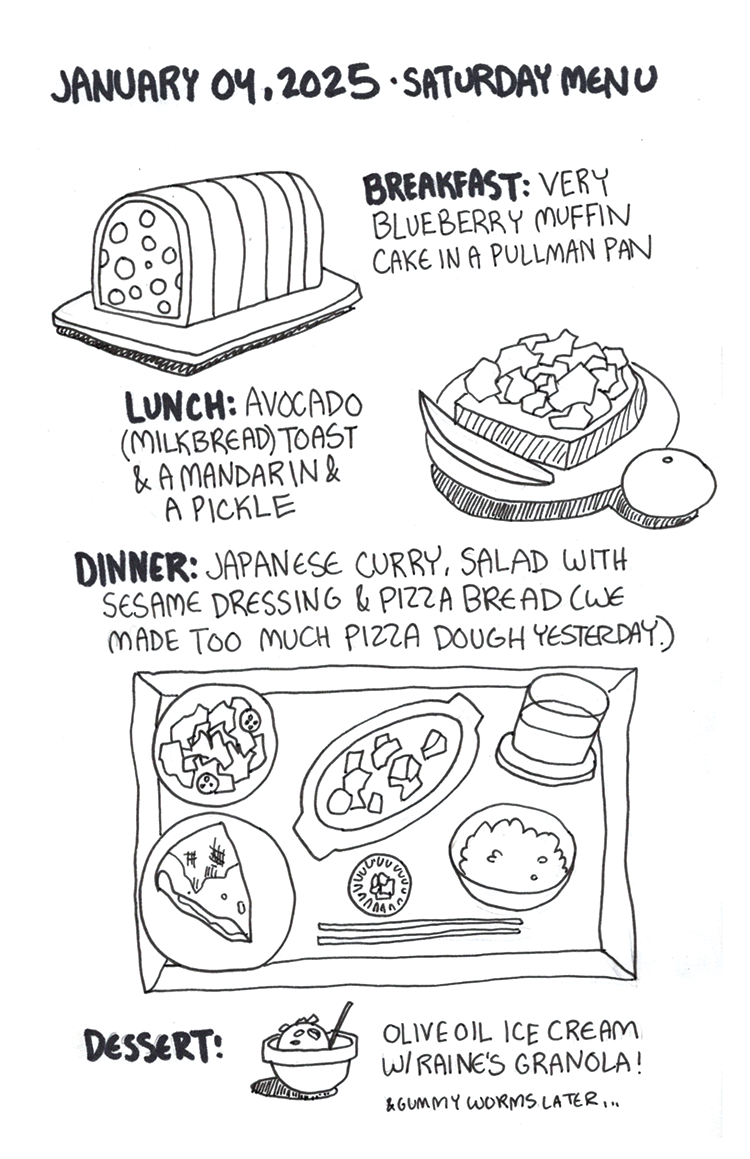 JANUARY 04, 2025 · SATURDAY MENU
BREAKFAST: VERY
BLUEBERRY MUFFIN
CAKE IN A PULLMAN PAN
LUNCH: AVOCADO
(MILKBREAD) TOAST
& A MANDARIN &
A PICKLE
DINNER: JAPANESE CURRY, SALAD WITH
SESAME DRESSING & PIZZA BREAD (WE
MADE TOO MUCH PIZZA DOUGH YESTERDAY.)
DESSERT:
OLIVE OIL ICE CREAM
W/ RAINE'S GRANOLA!
& GUMMY WORMS LATER...